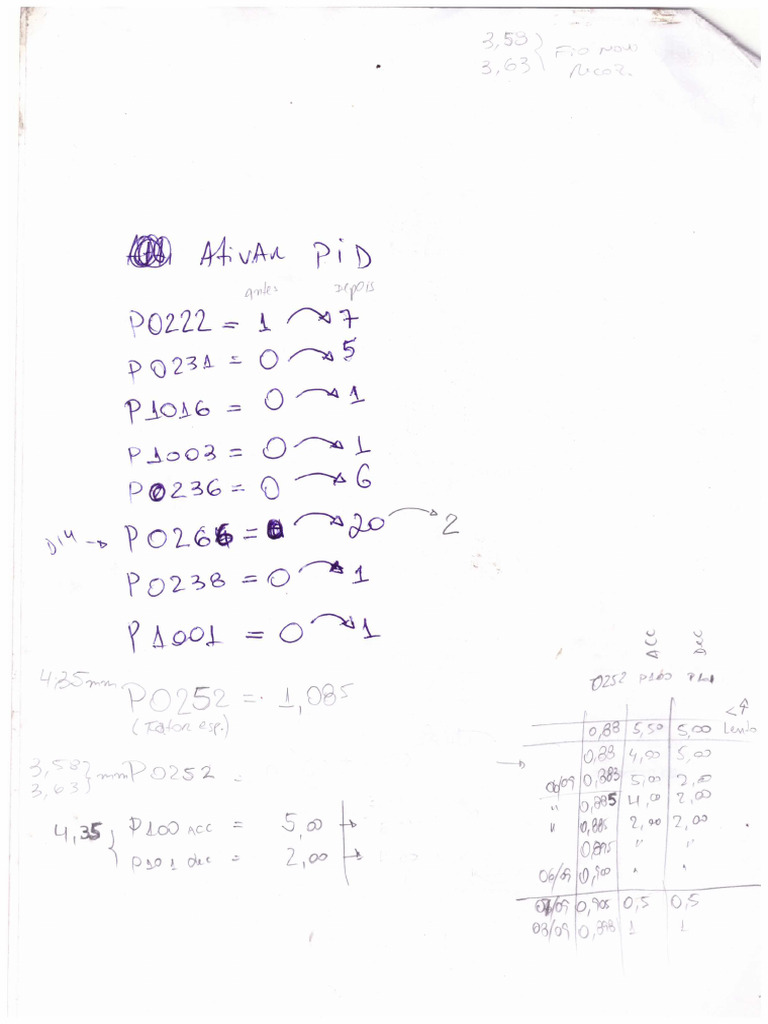 3,58
3,63
Fio novo
ATIVAR PID
antes depois
P0222 = 1 7
P0231 = 0 5
P1016 = 0 1
P1003 = 0 1
P0236 = 0 6
P0266 = 20 2
P0238 = 0 1
P1001 = 0 1
4,35mm P0252 = 1,085
(Fator esp.)
3,58
3,63 mm P0252 =
4,35 P100 ACC = 5,00
P101 dec = 2,00
ACC DEC
0252 P100 P101
0,88 5,50 5,00 Lento
0,88 4,00 5,00
06/09 0,883 5,00 2,00
" 0,885 4,00 2,00
" 0,885 2,00 2,00
0,895 " "
06/09 0,900 " "
07/09 0,905 0,5 0,5
03/09 0,898 1 1